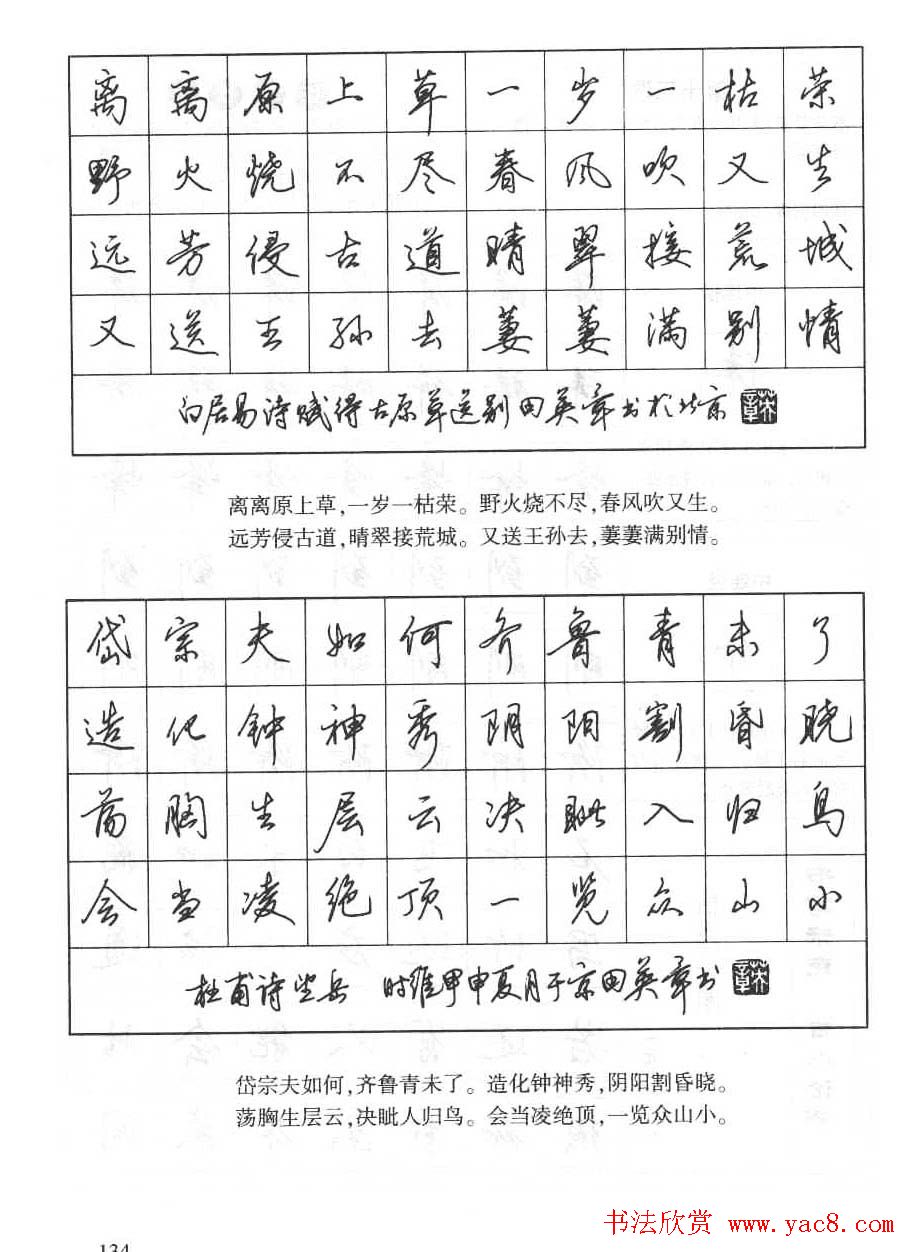 离离原上草一岁一枯荣
野火烧不尽春风吹又生
远芳侵古道晴翠接荒城
又送王孙去萋萋满别情
白居易诗赋得古原草送别田英章书于北京
英章
离离原上草,一岁一枯荣。野火烧不尽,春风吹又生。
远芳侵古道,晴翠接荒城。又送王孙去,萋萋满别情。
岱宗夫如何齐鲁青未了
造化钟神秀阴阳割昏晓
荡胸生层云决眦入归鸟
会当凌绝顶一览众山小
杜甫诗望岳 时维甲申夏月于京田英章书
英章
岱宗夫如何,齐鲁青未了。造化钟神秀,阴阳割昏晓。
荡胸生层云,决眦人归鸟。会当凌绝顶,一览众山小。
书法欣赏 www.yac8.com
134